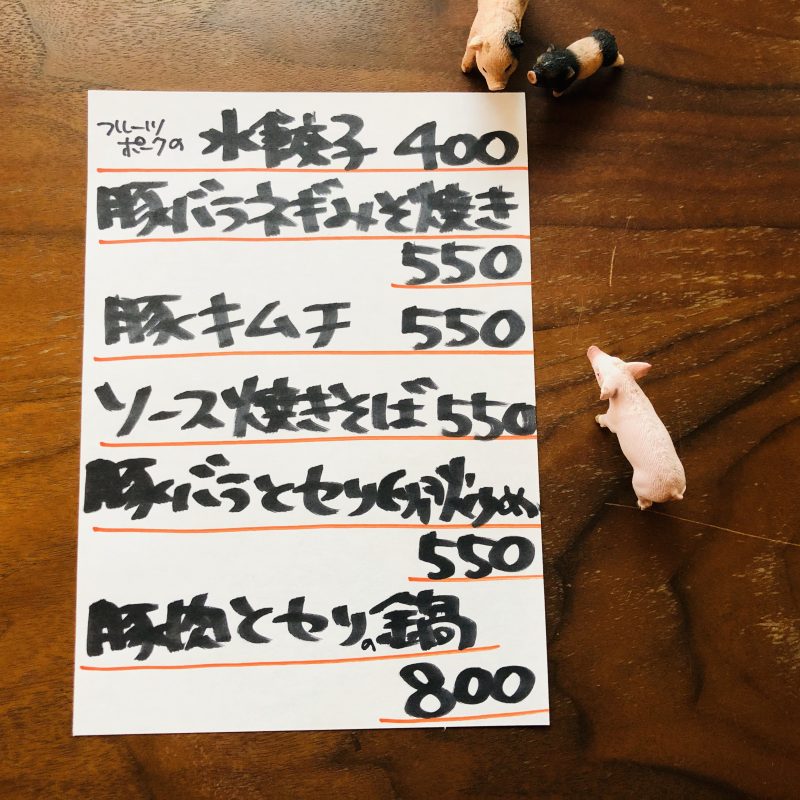 フルーツ
ポークの 水餃子 400
豚バラネギみそ焼き
550
豚キムチ 550
ソース焼きそば 550
豚バラとセリの炒め
550
豚肉とセリの鍋
800